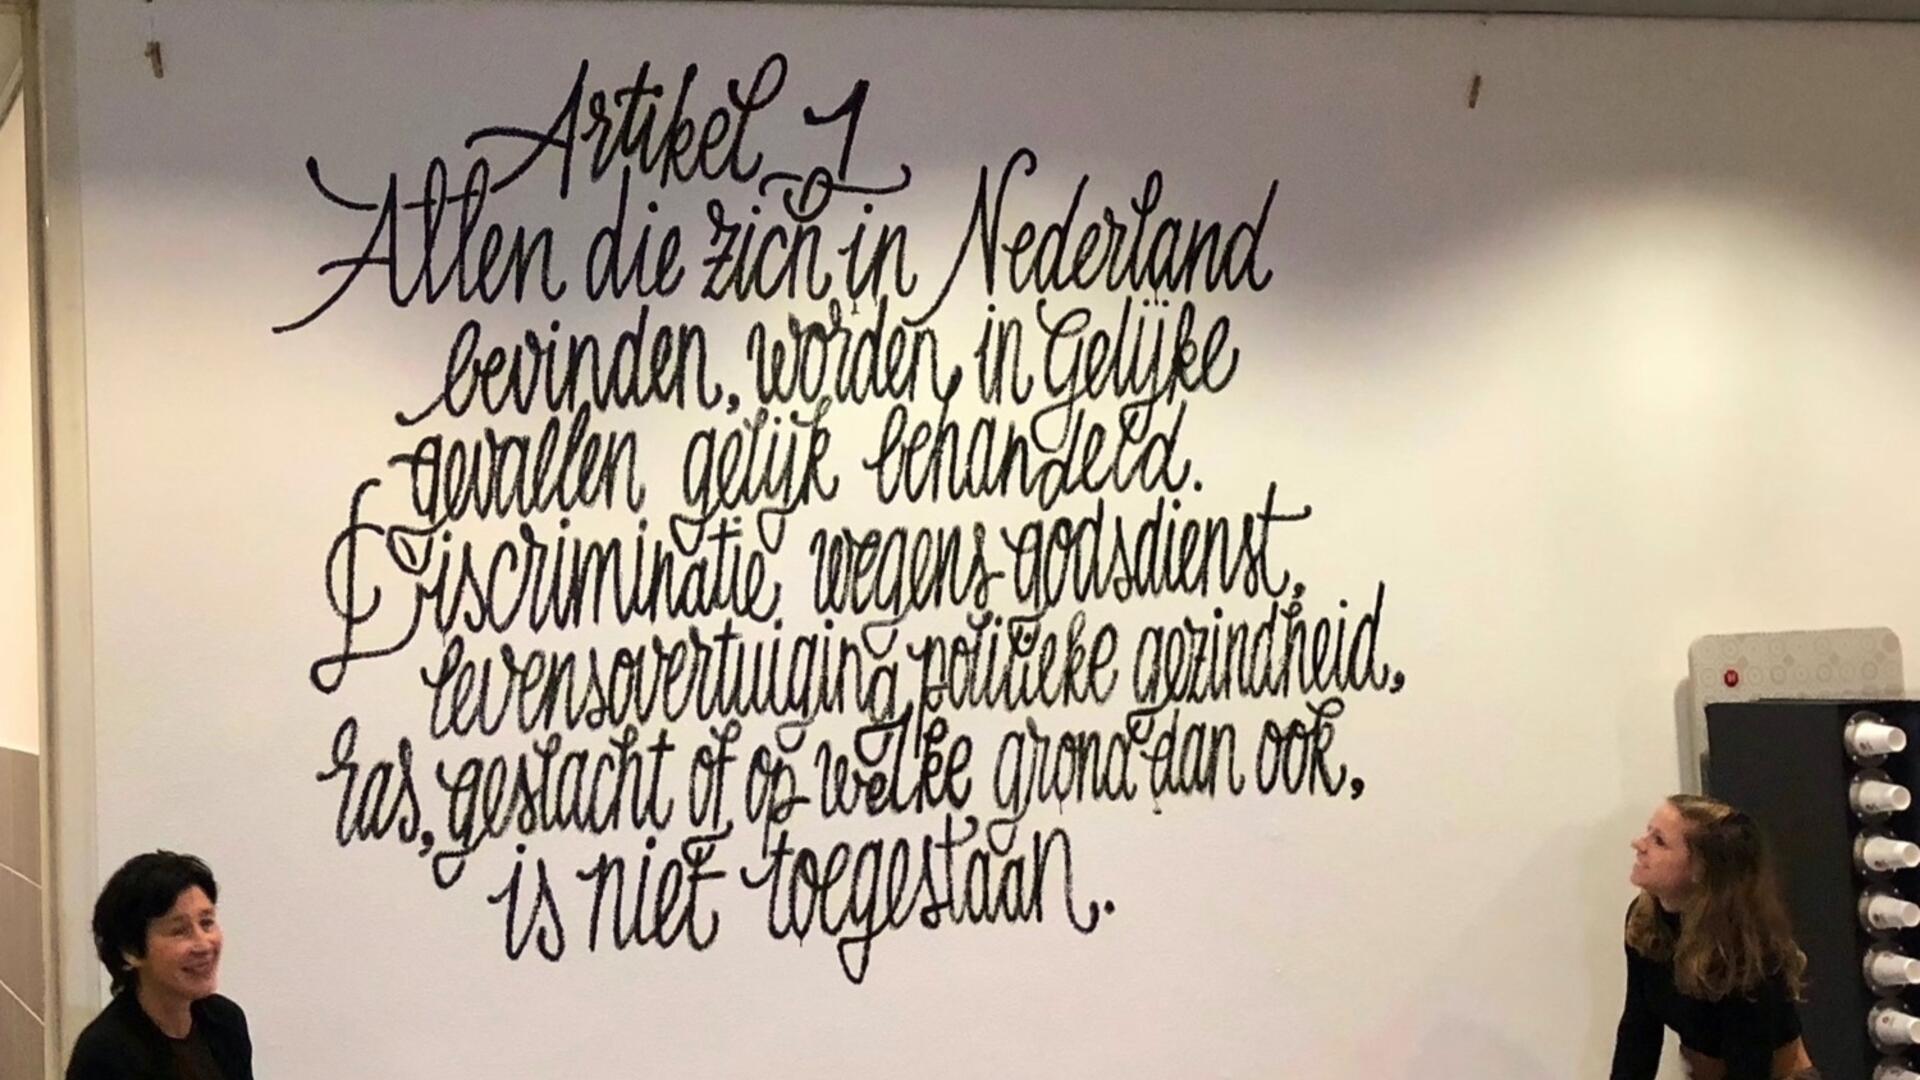 Artikel 1
Allen die zich in Nederland
bevinden, worden in Gelijke
gevallen gelijk behandeld.
Discriminatie wegens godsdienst,
levensovertuiging politieke gezindheid,
Ras, geslacht of op welke grond dan ook,
is niet toegestaan.